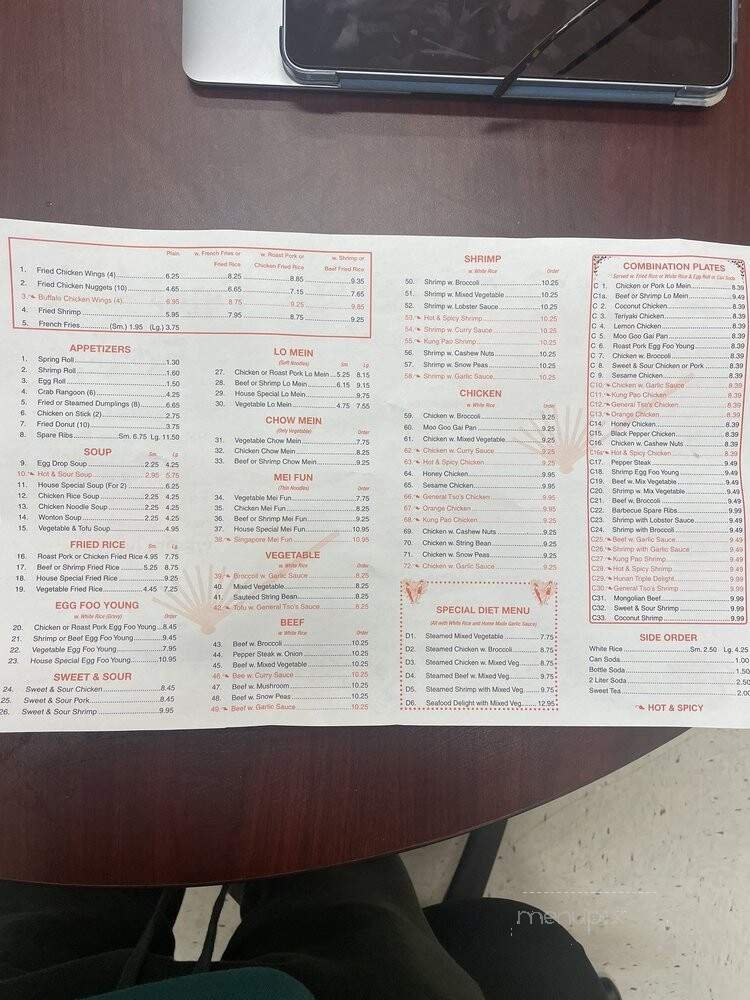 Plain w. French Fries or Fried Rice w. Roast Pork or Chicken Fried Rice w. Shrimp or Beef Fried Rice
1. Fried Chicken Wings (4) 6.25 8.25 8.85 9.35
2. Fried Chicken Nuggets (10) 4.65 6.65 7.15 7.65
3. Buffalo Chicken Wings (4) 6.95 8.75 9.25 9.85
4. Fried Shrimp 5.95 7.95 8.75 9.25
5. French Fries (Sm.) 1.95 (Lg.) 3.75
APPETIZERS
1. Spring Roll 1.30
2. Shrimp Roll 1.60
3. Egg Roll 1.50
4. Crab Rangoon (6) 4.25
5. Fried or Steamed Dumplings (8) 6.65
6. Chicken on Stick (2) 2.75
7. Fried Donut (10) 3.75
8. Spare Ribs Sm. 6.75 Lg. 11.50
SOUP
Sm. Lg.
9. Egg Drop Soup 2.25 4.25
10. Hot & Sour Soup 2.95 5.75
11. House Special Soup (For 2) 6.25
12. Chicken Rice Soup 2.25 4.25
13. Chicken Noodle Soup 2.25 4.25
14. Wonton Soup 2.25 4.25
15. Vegetable & Tofu Soup 4.95
FRIED RICE
Sm. Lg.
16. Roast Pork or Chicken Fried Rice 4.95 7.75
17. Beef or Shrimp Fried Rice 5.25 8.75
18. House Special Fried Rice 9.25
19. Vegetable Fried Rice 4.45 7.25
EGG FOO YOUNG
w. White Rice (Gravy) Order
20. Chicken or Roast Pork Egg Foo Young 8.45
21. Shrimp or Beef Egg Foo Young 9.45
22. Vegetable Egg Foo Young 7.95
23. House Special Egg Foo Young 10.95
SWEET & SOUR
24. Sweet & Sour Chicken 8.45
25. Sweet & Sour Pork 8.45
26. Sweet & Sour Shrimp 9.95
LO MEIN
(Soft Noodles) Sm. Lg.
27. Chicken or Roast Pork Lo Mein 5.25 8.15
28. Beef or Shrimp Lo Mein 6.15 9.15
29. House Special Lo Mein 9.75
30. Vegetable Lo Mein 4.75 7.55
CHOW MEIN
(Only Vegetable) Order
31. Vegetable Chow Mein 7.75
32. Chicken Chow Mein 8.25
33. Beef or Shrimp Chow Mein 9.25
MEI FUN
(Thin Noodles) Order
34. Vegetable Mei Fun 7.75
35. Chicken Mei Fun 8.25
36. Beef or Shrimp Mei Fun 9.25
37. House Special Mei Fun 10.95
38. Singapore Mei Fun 10.95
VEGETABLE
w. White Rice Order
39. Broccoli w. Garlic Sauce 8.25
40. Mixed Vegetable 8.25
41. Sauteed String Bean 8.25
42. Tofu w. General Tso's Sauce 8.25
BEEF
w. White Rice Order
43. Beef w. Broccoli 10.25
44. Pepper Steak w. Onion 10.25
45. Beef w. Mixed Vegetable 10.25
46. Bee w. Curry Sauce 10.25
47. Beef w. Mushroom 10.25
48. Beef w. Snow Peas 10.25
49. Beef w. Garlic Sauce 10.25
SHRIMP
w. White Rice Order
50. Shrimp w. Broccoli 10.25
51. Shrimp w. Mixed Vegetable 10.25
52. Shrimp w. Lobster Sauce 10.25
53. Hot & Spicy Shrimp 10.25
54. Shrimp w. Curry Sauce 10.25
55. Kung Pao Shrimp 10.25
56. Shrimp w. Cashew Nuts 10.25
57. Shrimp w. Snow Peas 10.25
58. Shrimp w. Garlic Sauce 10.25
CHICKEN
w. White Rice Order
59. Chicken w. Broccoli 9.25
60. Moo Goo Gai Pan 9.25
61. Chicken w. Mixed Vegetable 9.25
62. Chicken w. Curry Sauce 9.25
63. Hot & Spicy Chicken 9.25
64. Honey Chicken 9.95
65. Sesame Chicken 9.95
66. General Tso's Chicken 9.95
67. Orange Chicken 9.95
68. Kung Pao Chicken 9.25
69. Chicken w. Cashew Nuts 9.25
70. Chicken w. String Bean 9.25
71. Chicken w. Snow Peas 9.25
72. Chicken w. Garlic Sauce 9.25
SPECIAL DIET MENU
(All with White Rice and Home Made Garlic Sauce)
D1. Steamed Mixed Vegetable 7.75
D2. Steamed Chicken w. Broccoli 8.75
D3. Steamed Chicken w. Mixed Veg. 8.75
D4. Steamed Beef w. Mixed Veg. 9.75
D5. Steamed Shrimp w. Mixed Veg. 9.75
D6. Seafood Delight with Mixed Veg. 12.95
COMBINATION PLATES
Served w. Fried Rice or White Rice & Egg Roll or Can Soda
C 1. Chicken or Pork Lo Mein 8.39
C1a. Beef or Shrimp Lo Mein 9.49
C 2. Coconut Chicken 8.39
C 3. Teriyaki Chicken 8.39
C 4. Lemon Chicken 8.39
C 5. Moo Goo Gai Pan 8.39
C 6. Roast Pork Egg Foo Young 8.39
C 7. Chicken w. Broccoli 8.39
C 8. Sweet & Sour Chicken or Pork 8.39
C 9. Sesame Chicken 8.39
C10. Chicken w. Garlic Sauce 8.39
C11. Kung Pao Chicken 8.39
C12. General Tso's Chicken 8.39
C13. Orange Chicken 8.39
C14. Honey Chicken 8.39
C15. Black Pepper Chicken 8.39
C16. Chicken w. Cashew Nuts 8.39
C16a. Hot & Spicy Chicken 8.39
C17. Pepper Steak 9.49
C18. Shrimp Egg Foo Young 9.49
C19. Beef w. Mix Vegetable 9.49
C20. Shrimp w. Mix Vegetable 9.49
C21. Beef w. Broccoli 9.49
C22. Barbecue Spare Ribs 9.99
C23. Shrimp with Lobster Sauce 9.49
C24. Shrimp with Broccoli 9.49
C25. Beef w. Garlic Sauce 9.49
C26. Shrimp with Garlic Sauce 9.49
C27. Kung Pao Shrimp 9.49
C28. Hot & Spicy Shrimp 9.49
C29. Hunan Triple Delight 9.99
C30. General Tso's Shrimp 9.99
C31. Mongolian Beef 9.99
C32. Sweet & Sour Shrimp 9.99
C33. Coconut Shrimp 9.99
SIDE ORDER
White Rice Sm. 2.50 Lg. 4.25
Can Soda 1.00
Bottle Soda 1.50
2 Liter Soda 2.50
Sweet Tea 2.00
HOT & SPICY